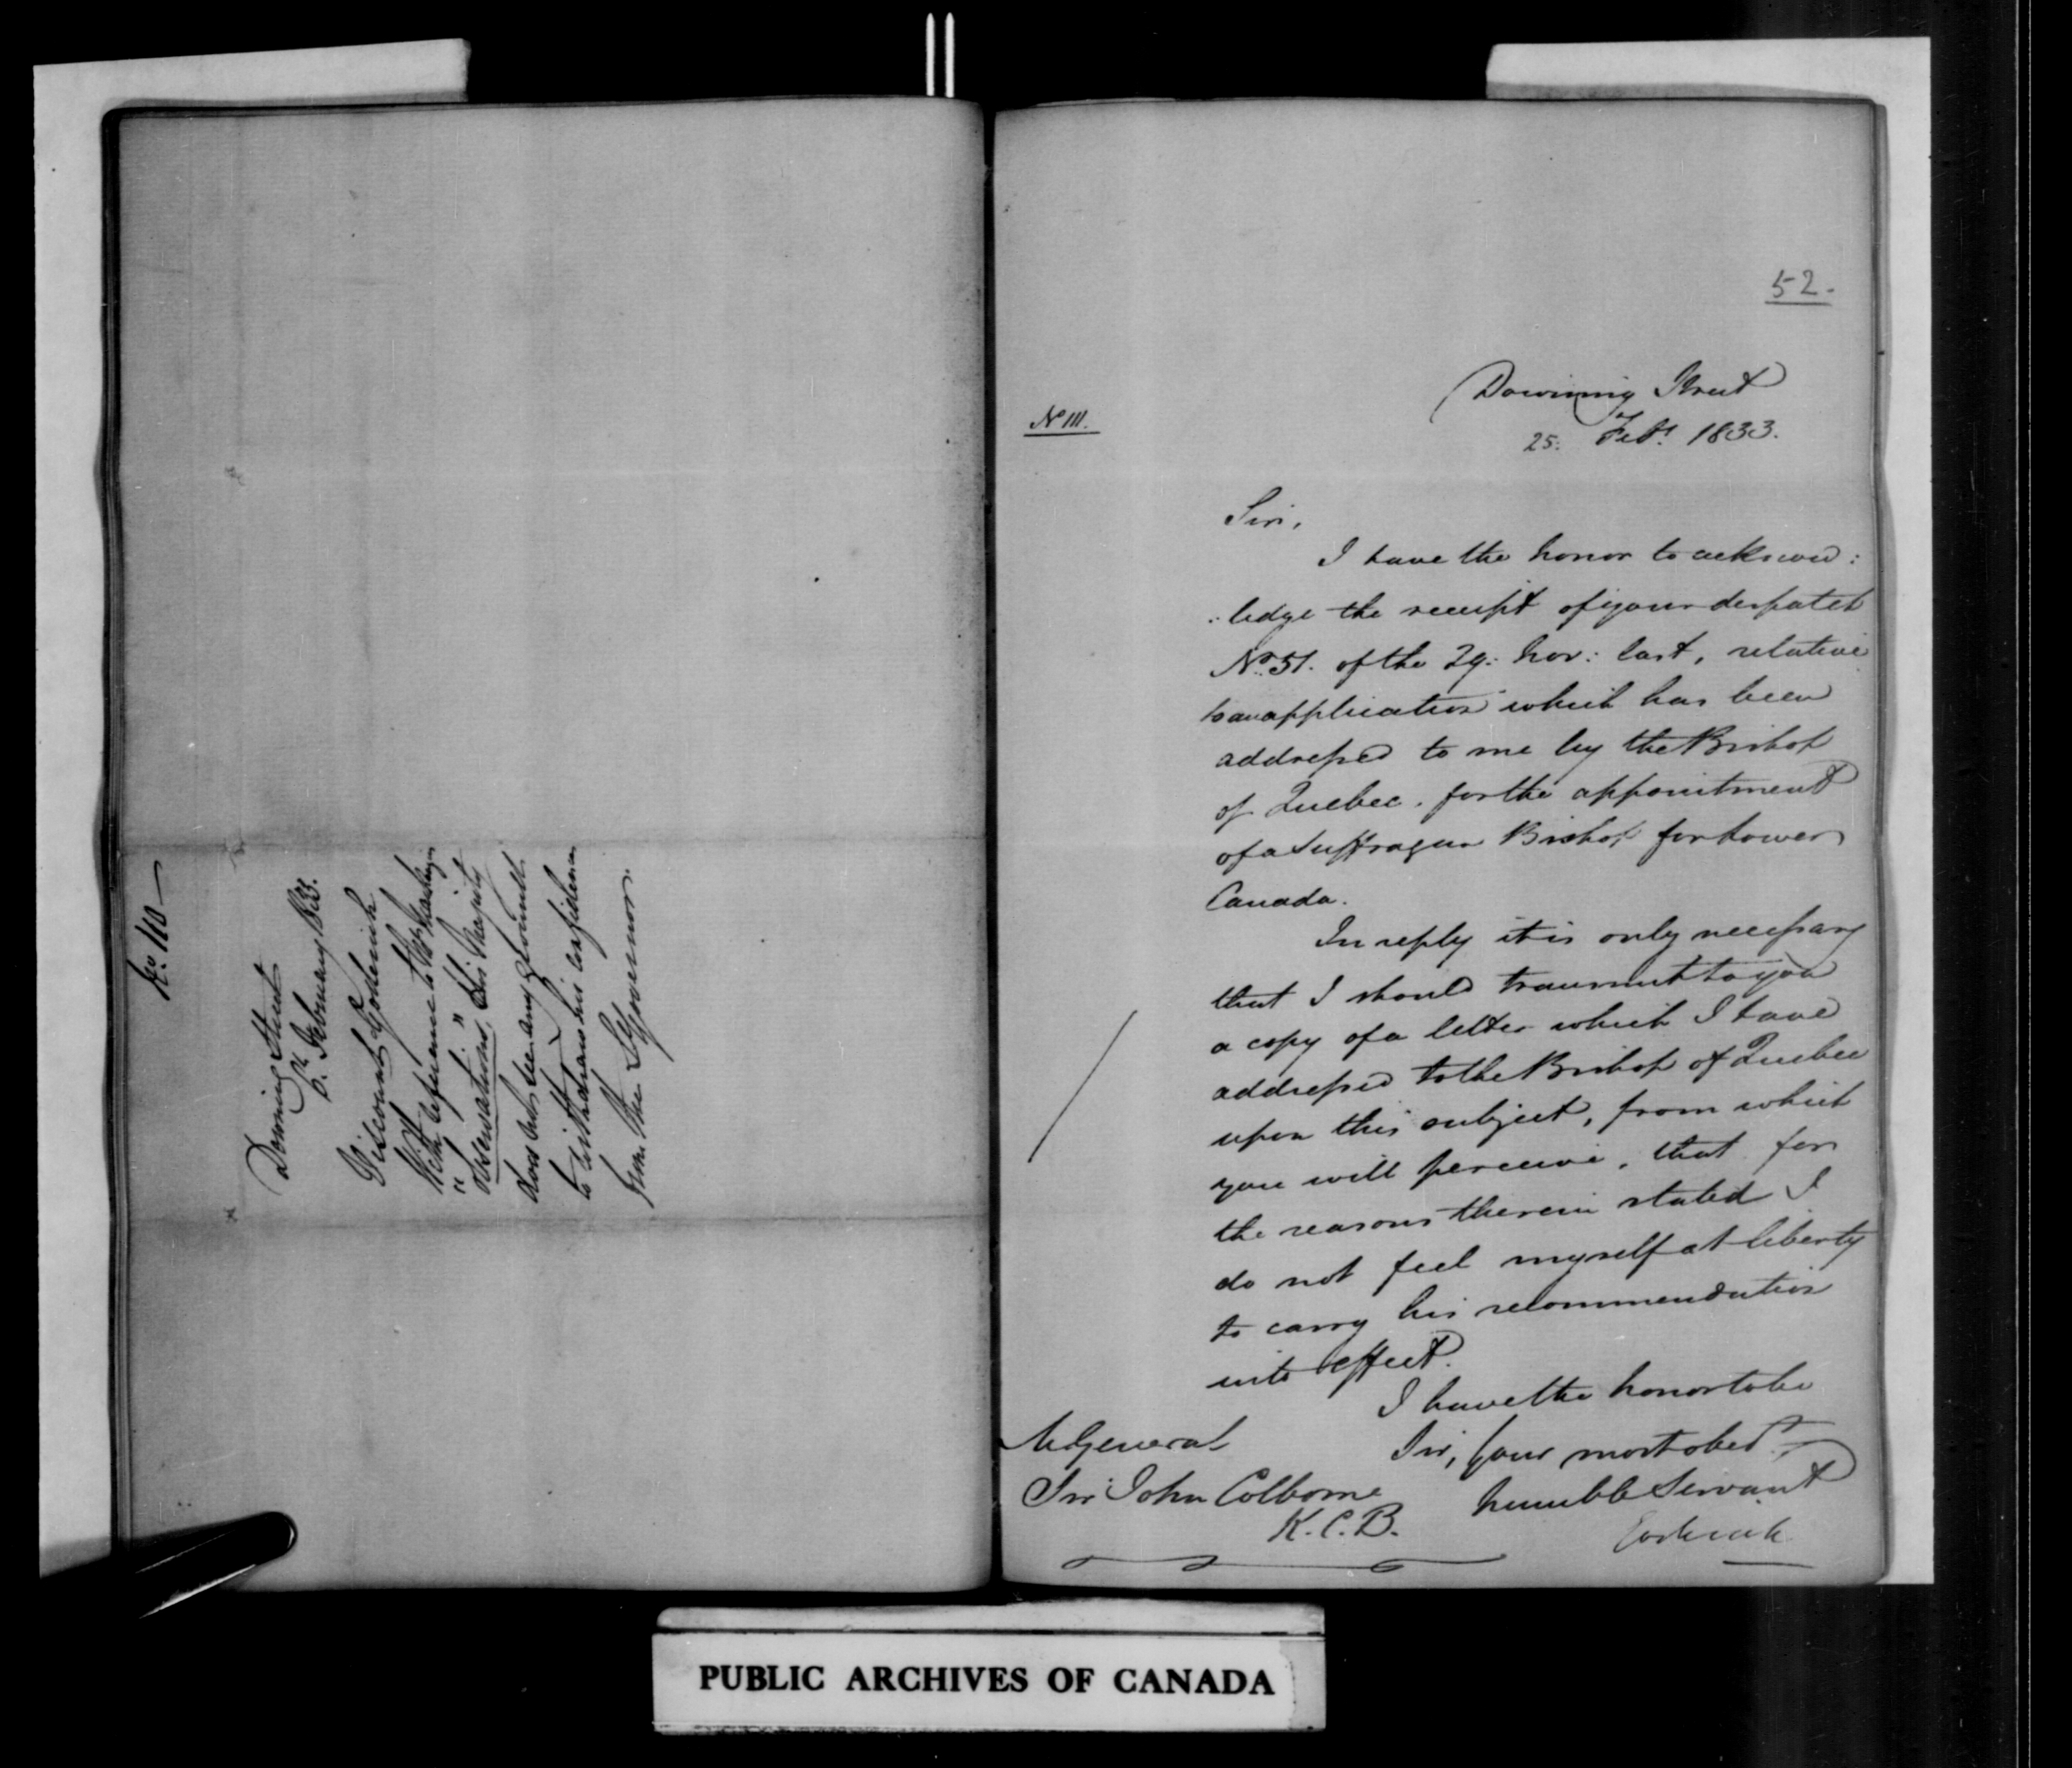 No. 110 —
Downing Street
6th. February 1833.
Viscount Goderich
With reference to Mr. Mackenzie
" and his "
observations, His Majesty
does not see any grounds
to withdraw his confidence
from the Lt. Governor.
52.
No 111.
Downing Street
25: Feby. 1833.
Sir,
I have the honor to acknow:
:ledge the receipt of your despatch
No. 51. of the 29: Nov: last, relative
to an application which has been
addressed to me by the Bishop
of Quebec, for the appointment
of a Suffragan Bishop for Lower
Canada.
In reply it is only necessary
that I should transmit to you
a copy of a letter which I have
addressed to the Bishop of Quebec
upon this subject, from which
you will perceive, that for
the reasons therein stated I
do not feel myself at liberty
to carry his recommendation
into effect.
I have the honor to be
Sir, Your most obedt.
humble Servant
Goderich
M General
Sir John Colborne
K.C.B.
PUBLIC ARCHIVES OF CANADA